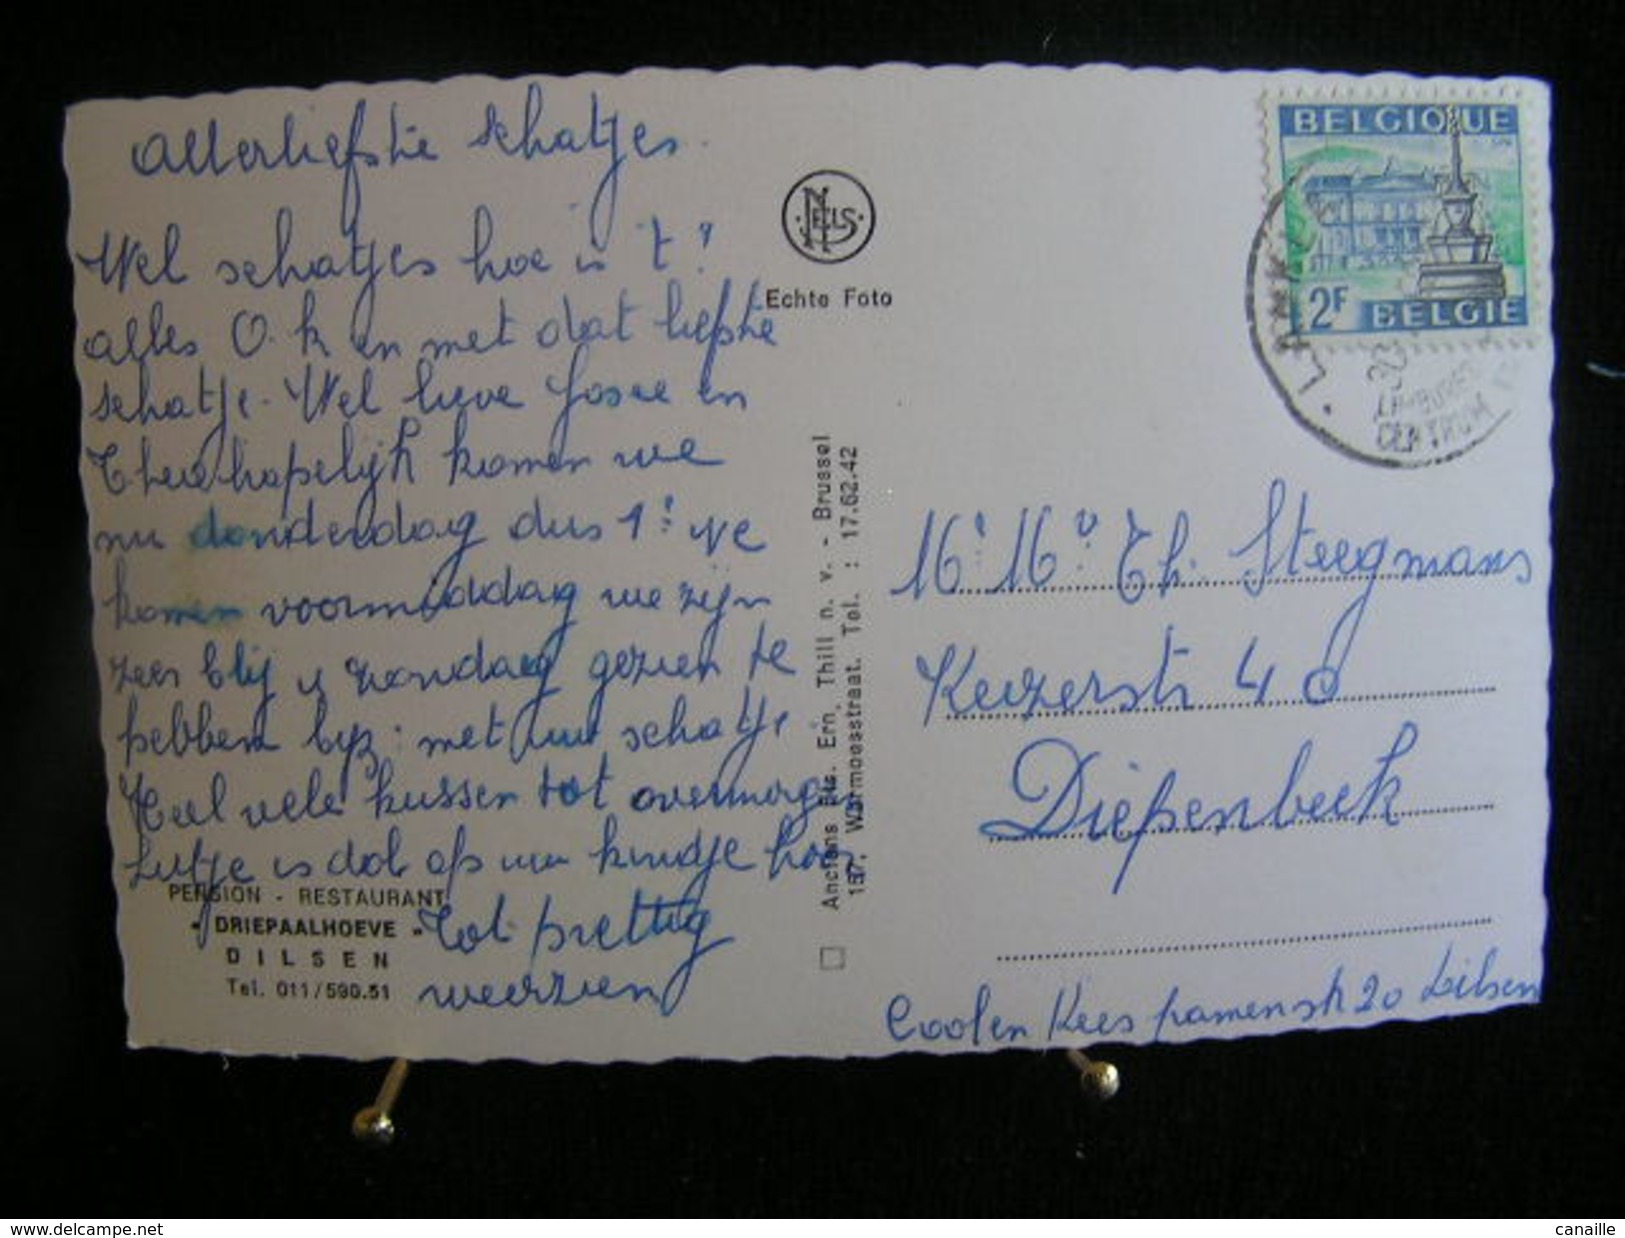 Allerliefste schatjes.
Wel schatjes hoe is 't?
alles O.k en met dat liefste
schatje. Wel lieve Josee en
Theo hopelijk komen we
nu donderdag dus 1: we
komen voormiddag we zijn
zeer blij u zondag gezien te
hebben bij: met uw schatje
Heel vele kussen tot overmorgen
Lutje is dol op uw kindje hoor
Tot prettig
weerzien
PENSION - RESTAURANT
« DRIEPAALHOEVE »
DILSEN
Tel. 011/590.51
NELS
Echte Foto
Anciens Ets. Ern. Thill n. v. - Brussel
157, Warmoesstraat. Tel. : 17.62.42
BELGIQUE
2F BELGIE
LANKL
30
LIMBURGS
CENTRUM
Mr Mv. Th. Steegmans
Keizerstr 40
Diepenbeek
Coolen Kees hamerstr 20 Dilsen
www.delcampe.net
canaille